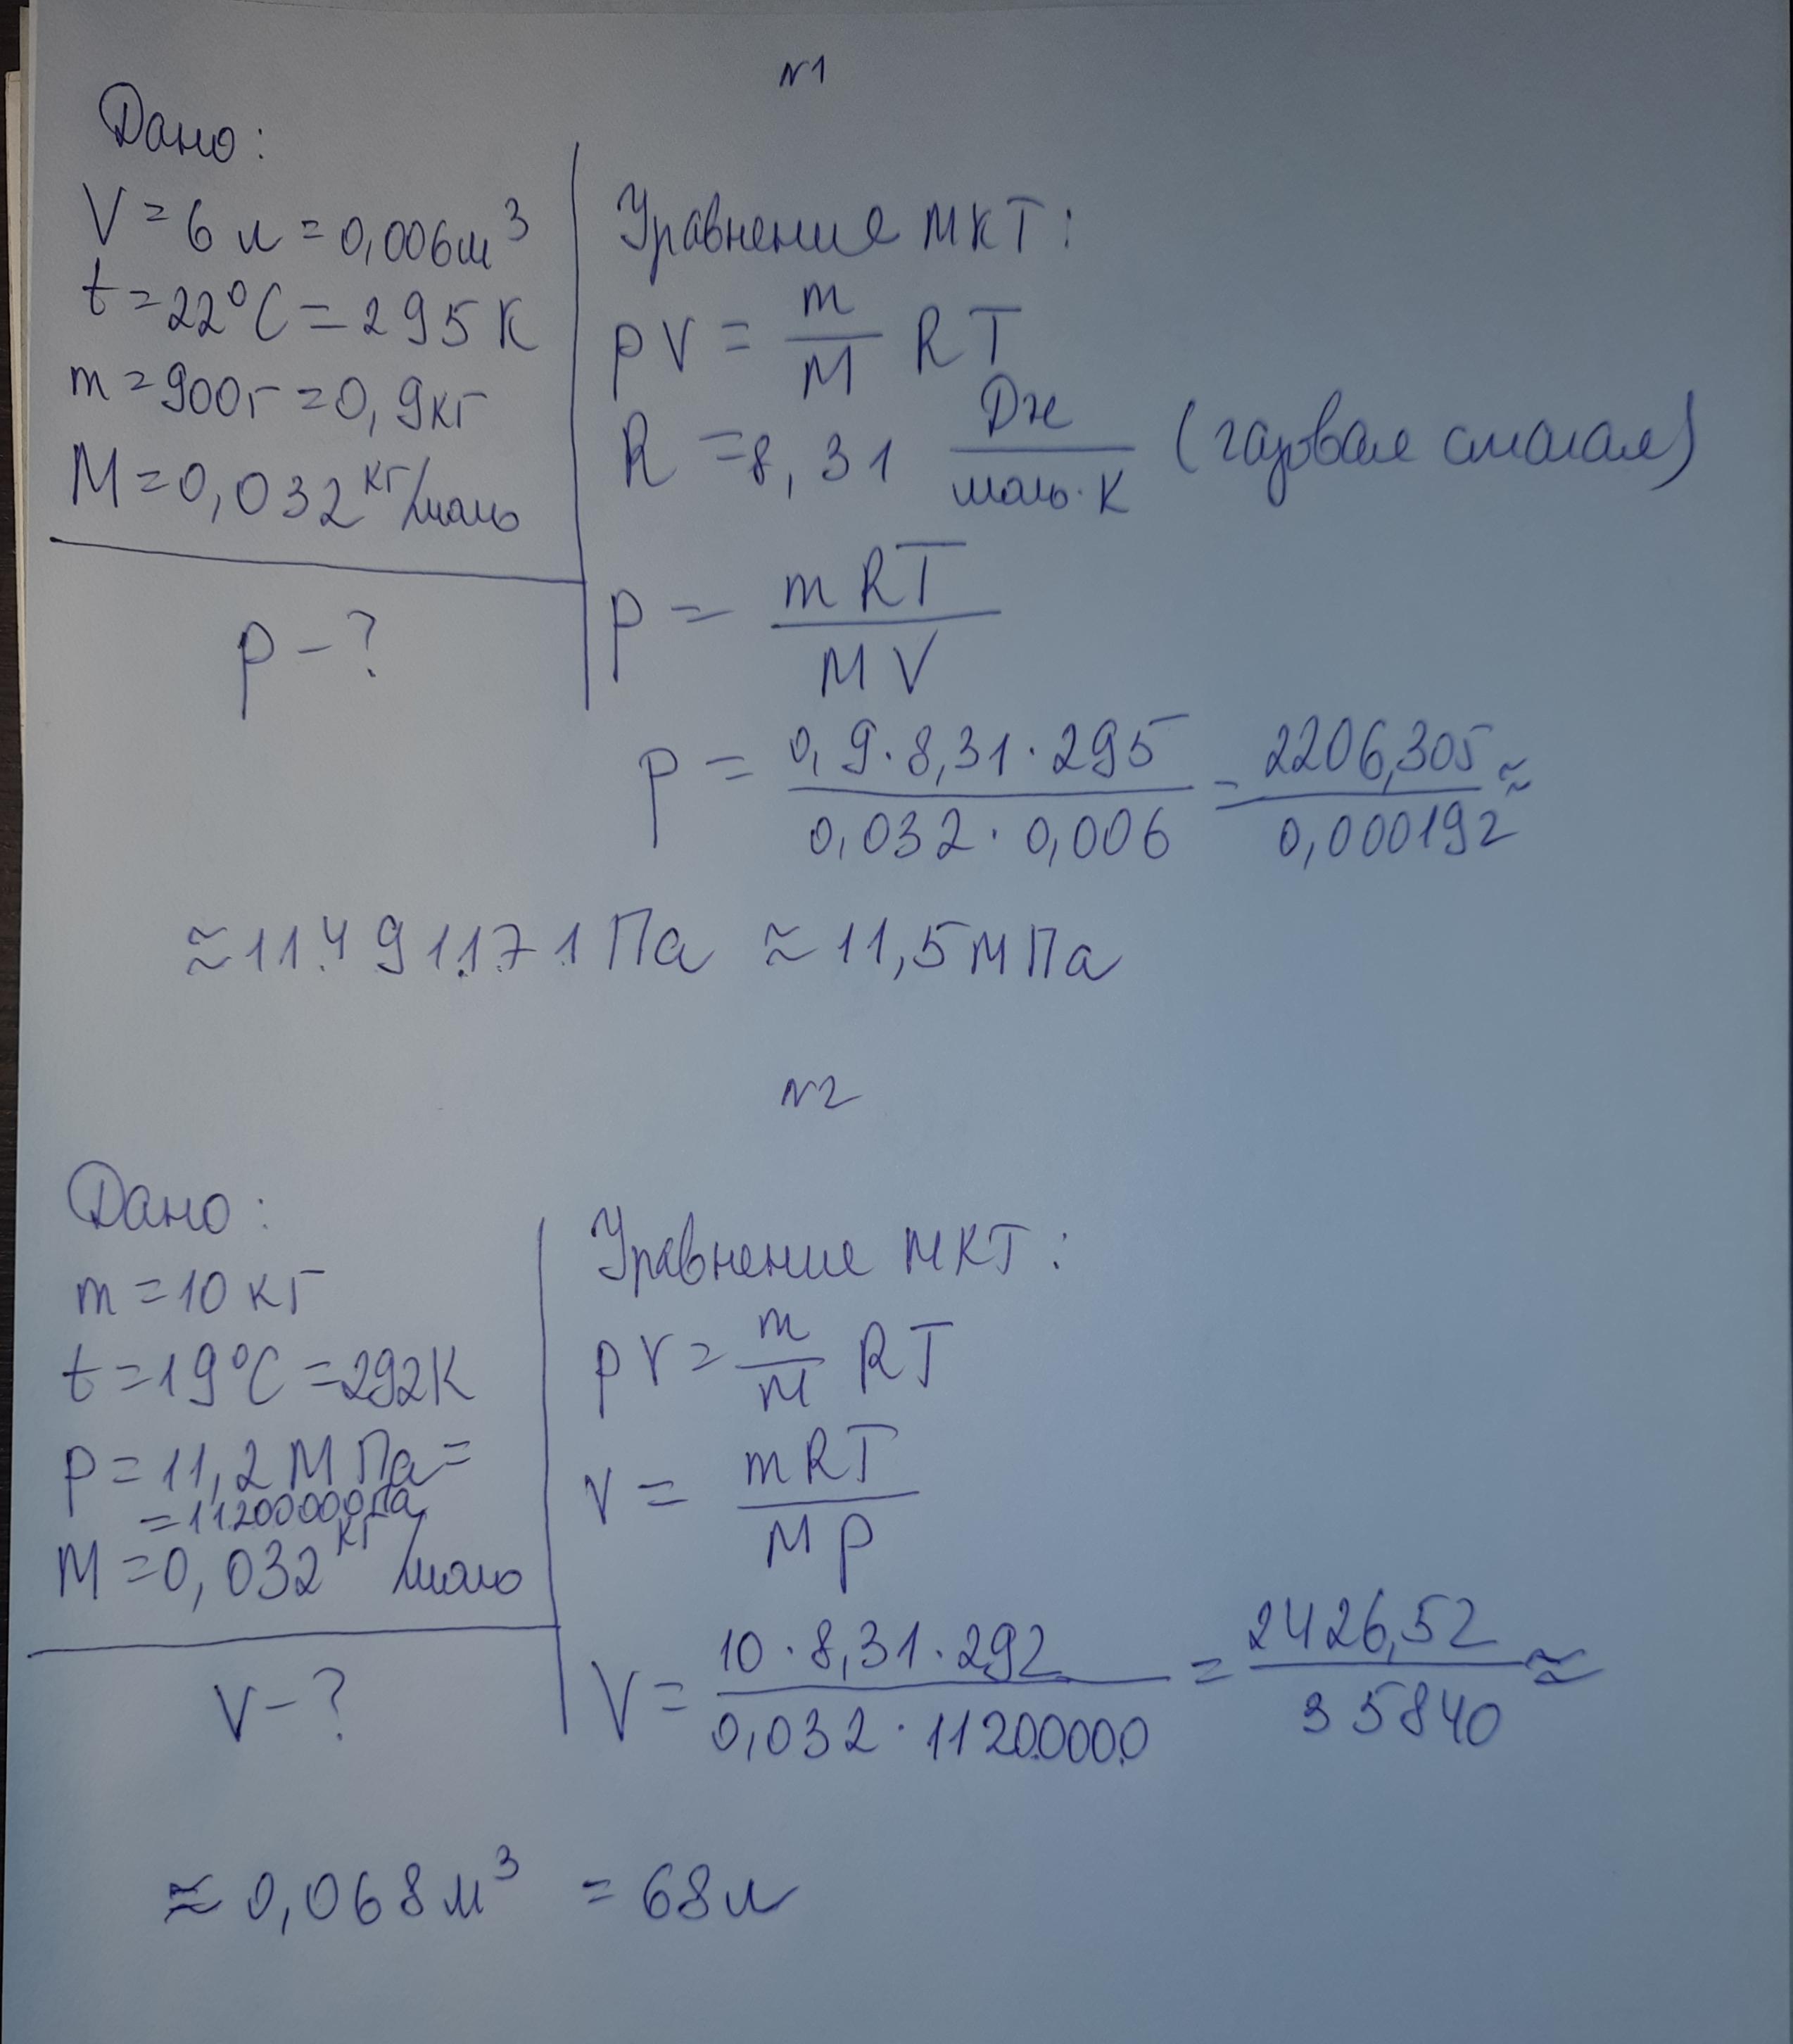 №1
Дано:
V = 6 л = 0,006 м³
t = 22°C = 295 К
m = 900 г = 0,9 кг
M = 0,032 кг/моль
p - ?
Уравнение МКТ:
pV = m/M RT
R = 8,31 Дж/моль·К (газовая
p = mRT/MV
p = 0,9·8,31·295/0,032·0,006 = 2206,305/0,000192 ≈
≈ 11.491.171 Па ≈ 11,5 МПа
№2
Дано:
m = 10 кг
t = 19°C = 292 К
p = 11,2 МПа =
= 11200000 Па
M = 0,032 кг/моль
V - ?
Уравнение МКТ:
pV = m/M RT
V = mRT/Mp
V = 10·8,31·292/0,032·11200000 = 2426,52/35840 ≈
≈ 0,068 м³ = 68 л